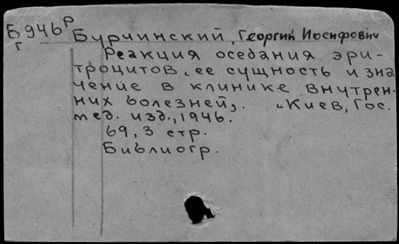 Б946р Бурчинский, Георгий Иосифович
г
Реакция оседания эри-
троцитов, ее сущность и зна
чение в клинике внутрен-
них болезней,. Киев, Гос.
мед. изд., 1946.
69, 3 стр.
Библиогр.